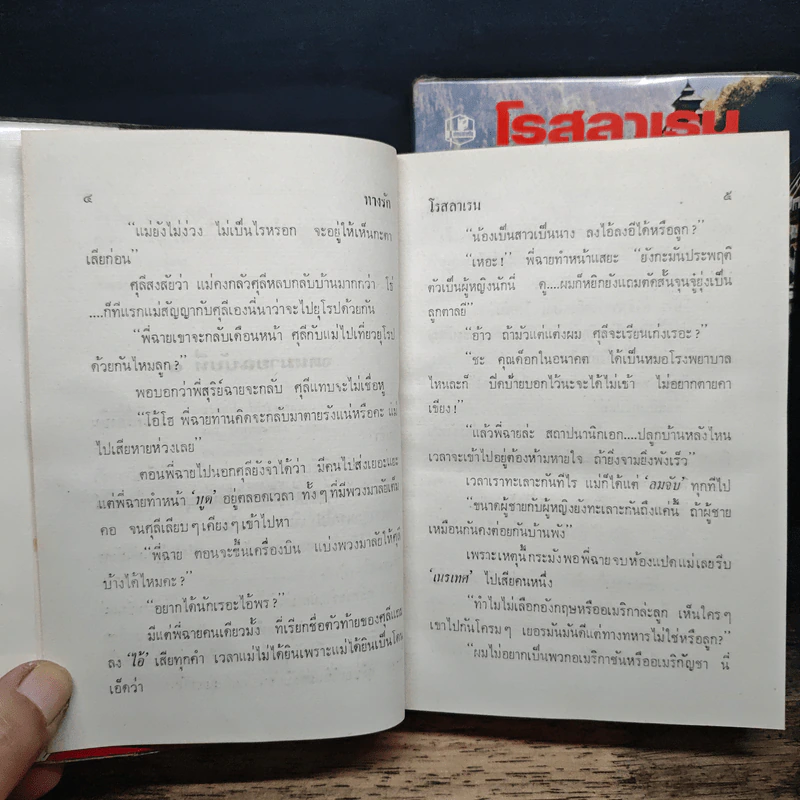 โรสลาเรน
๔ ทางรัก
"แม่ยังไม่ง่วง ไม่เป็นไรหรอก จะอยู่ให้เห็นกะตา
เสียก่อน"
ศุลีสงสัยว่า แม่คงกลัวศุลีหลบกลับบ้านมากกว่า โธ่
....ก็ทีแรกแม่สัญญากับศุลีเองนี่นาว่าจะไปยุโรปด้วยกัน
"พี่ฉายเขาจะกลับเดือนหน้า ศุลีกับแม่ไปเที่ยวยุโรป
ด้วยกันไหมลูก?"
พอบอกว่าพี่สุริย์ฉายจะกลับ ศุลีแทบจะไม่เชื่อหู
"โอ้โฮ พี่ฉายท่านคิดจะกลับมาตายรังแน่หรือคะ แม่
ไปเสียหายห่วงเลย"
ตอนพี่ฉายไปนอกศุลียังจำได้ว่า มีคนไปส่งเยอะแยะ
แต่พี่ฉายทำหน้า 'ทูต' อยู่ตลอดเวลา ทั้งๆ ที่มีพวงมาลัยเต็ม
คอ จนศุลีเลียบๆ เคียงๆ เข้าไปหา
"พี่ฉาย ตอนจะขึ้นเครื่องบิน แบ่งพวงมาลัยให้ศุลี
บ้างได้ไหมคะ?"
"อยากได้นักเรอะไอ้พร?"
มีแต่พี่ฉายคนเดียวมั้ง ที่เรียกชื่อตัวท้ายของศุลีแถม
ลง 'ไอ้' เสียทุกคำ เวลาแม่ไม่ได้ยินเพราะแม่ได้ยินเป็นโดน
เอ็ดว่า
โรสลาเรน ๕
"น้องเป็นสาวเป็นนาง ลงไอ้ลงอีได้หรือลูก?"
"เหอะ!" พี่ฉายทำหน้าแสยะ "ยังกะมันประพฤติ
ตัวเป็นผู้หญิงนักนี่ ดู....ผมก็หยิกยังแถมตัดสั้นจุนจู๋ยุ่งเป็น
ลูกตาลยี"
"อ้าว ถ้ามัวแต่แต่งผม ศุลีจะเรียนเก่งเรอะ?"
"ชะ คุณด็อกในอนาคต ได้เป็นหมอโรงพยาบาล
ไหนละก็ ปิดป้ายบอกไว้นะจะได้ไม่เข้า ไม่อยากตายคา
เขียง!"
"แล้วพี่ฉายล่ะ สถาปนานิกเอก....ปลูกบ้านหลังไหน
เวลาจะเข้าไปอยู่ต้องห้ามหายใจ ถ้ายิ่งจามยิ่งพังเร็ว"
เวลาเราทะเลาะกันทีไร แม่ก็ได้แต่ 'ลมจับ' ทุกทีไป
"ขนาดผู้ชายกับผู้หญิงยังทะเลาะกันถึงแค่นี้ ถ้าผู้ชาย
เหมือนกันคงต่อยกันบ้านพัง"
เพราะเหตุนี้กระมังพอพี่ฉายจบห้องแปดแม่เลยรีบ
'เนรเทศ' ไปเสียคนหนึ่ง
"ทำไมไม่เลือกอังกฤษหรืออเมริกาล่ะลูก เห็นใครๆ
เขาไปกันโครมๆ เยอรมันมันดีแต่ทางทหารไม่ใช่หรือลูก?"
"ผมไม่อยากเป็นพวกอเมริกาซันหรืออเมริกัญชา นี่